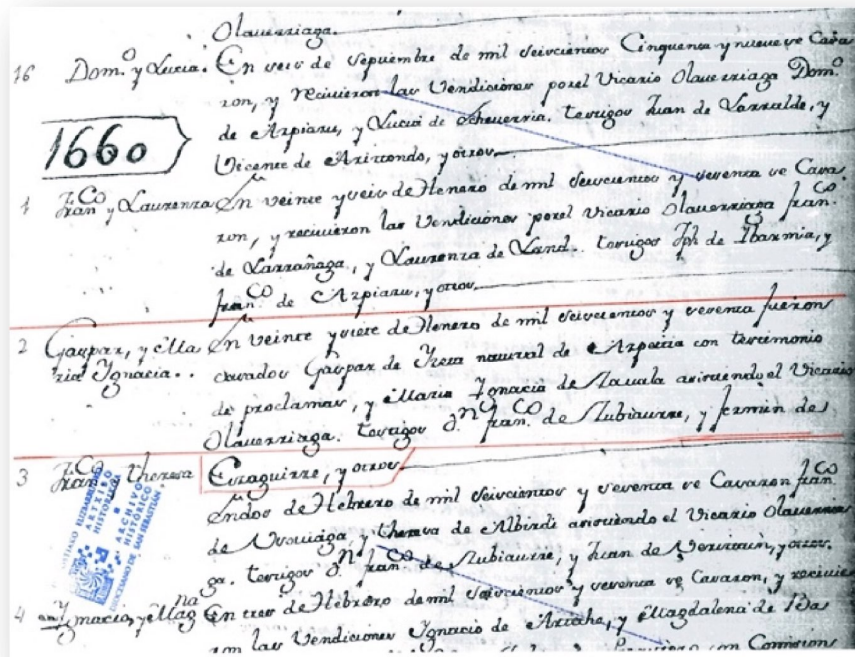 Olaverriaga.
16 Dom.º y Lucia. En seis de Septiembre de mil seiscientos Cinquenta y nueve se Casa
ron, y recivieron las Vendiciones por el Vicario Olaverriaga Dom.º
de Azpiazu, y Lucia de Echeverria. testigos Juan de Larralde, y
Vicente de Arizcondo, y otros
1660
1 Fran.CO y Laurenza En veinte y seis de Henero de mil seiscientos y sesenta se Casa.
ron, y recivieron las Vendiciones por el Vicario Olaverriaga fran.CO
de Larrañaga, y Laurenza de Land.. testigos Jph de Ibarmia, y
fran.CO de Azpiazu, y otros
2 Gaspar, y Ma En veinte y siete de Henero de mil seiscientos y sesenta fueron
ria Ignacia.. casados Gaspar de natural de Azpeitia con testimonio
de proclamas, y Maria Ignacia de Zavala asistiendo el Vicario
Olaverriaga. testigos D.n fran.CO de Zubiaurre, y fermin de
Eyzaguirre, y otros
3 Fran.CO y theresa En dos de Hebrero de mil seiscientos y sesenta se Casaron fran.CO
de y theresa de Albizdi asistiendo el Vicario Olaverria
ga. testigos D.n fran.CO de Zubiaurre, y Juan de y otros.
4 Ygnacio, y Mag.na En tres de Hebrero de mil seiscientos y sesenta se Casaron, y recivie
ron las Vendiciones Ignacio de y Magdalena de
con Comision
ARCHIVO
HISTORICO
DIOCESANO DE SAN SEBASTIAN